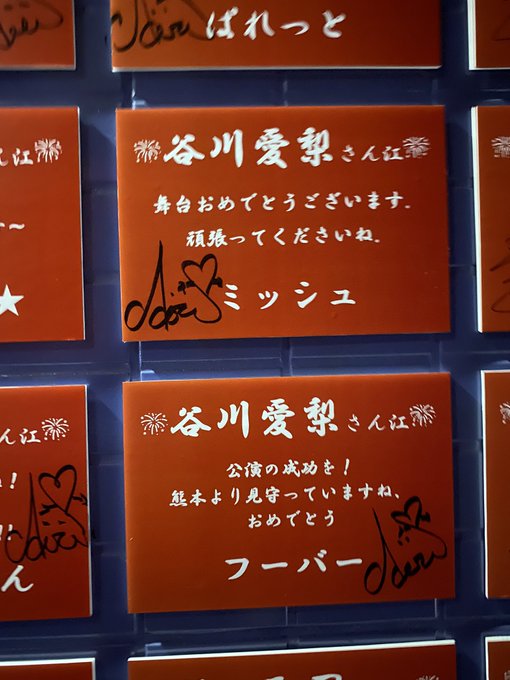 ぱれっと
ん江
谷川愛梨さん江
舞台おめでとうございます。
頑張ってくださいね。
ミッシュ
～
★
ん江
谷川愛梨さん江
公演の成功を！
熊本より見守っていますね、
おめでとう
フーバー
！
ん